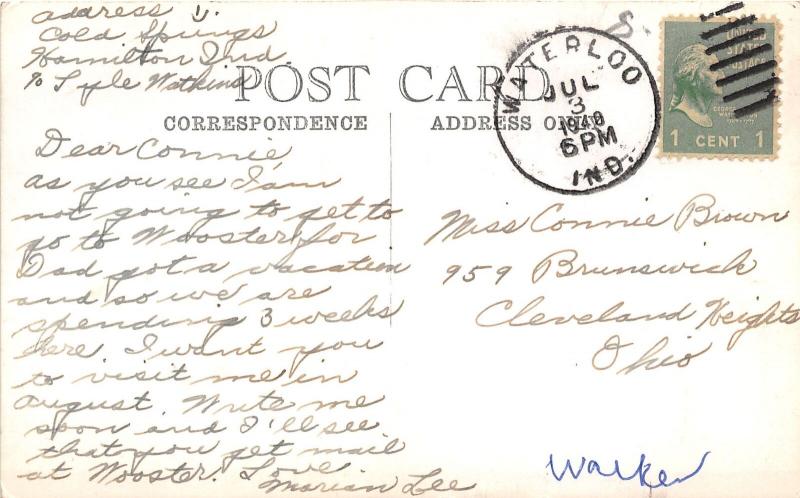 address is.
Cold Springs
Hamilton Ind
% Lyle Watkins
POST CARD
CORRESPONDENCE
ADDRESS ONLY
WATERLOO
JUL
3
1940
6 PM
IND.
UNITED
STATES
POSTAGE
1 CENT 1
Dear Connie,
as you see I'am
not going to get to
go to Wooster for
Dad got a vacation
and so we are
spending 3 weeks
here. I want you
to visit me in
August. Write me
soon and I'll see
that you get mail
at Wooster. Love
Marian Lee
Miss Connie Brown
959 Brunswick
Cleveland Heights
Ohio
Walker